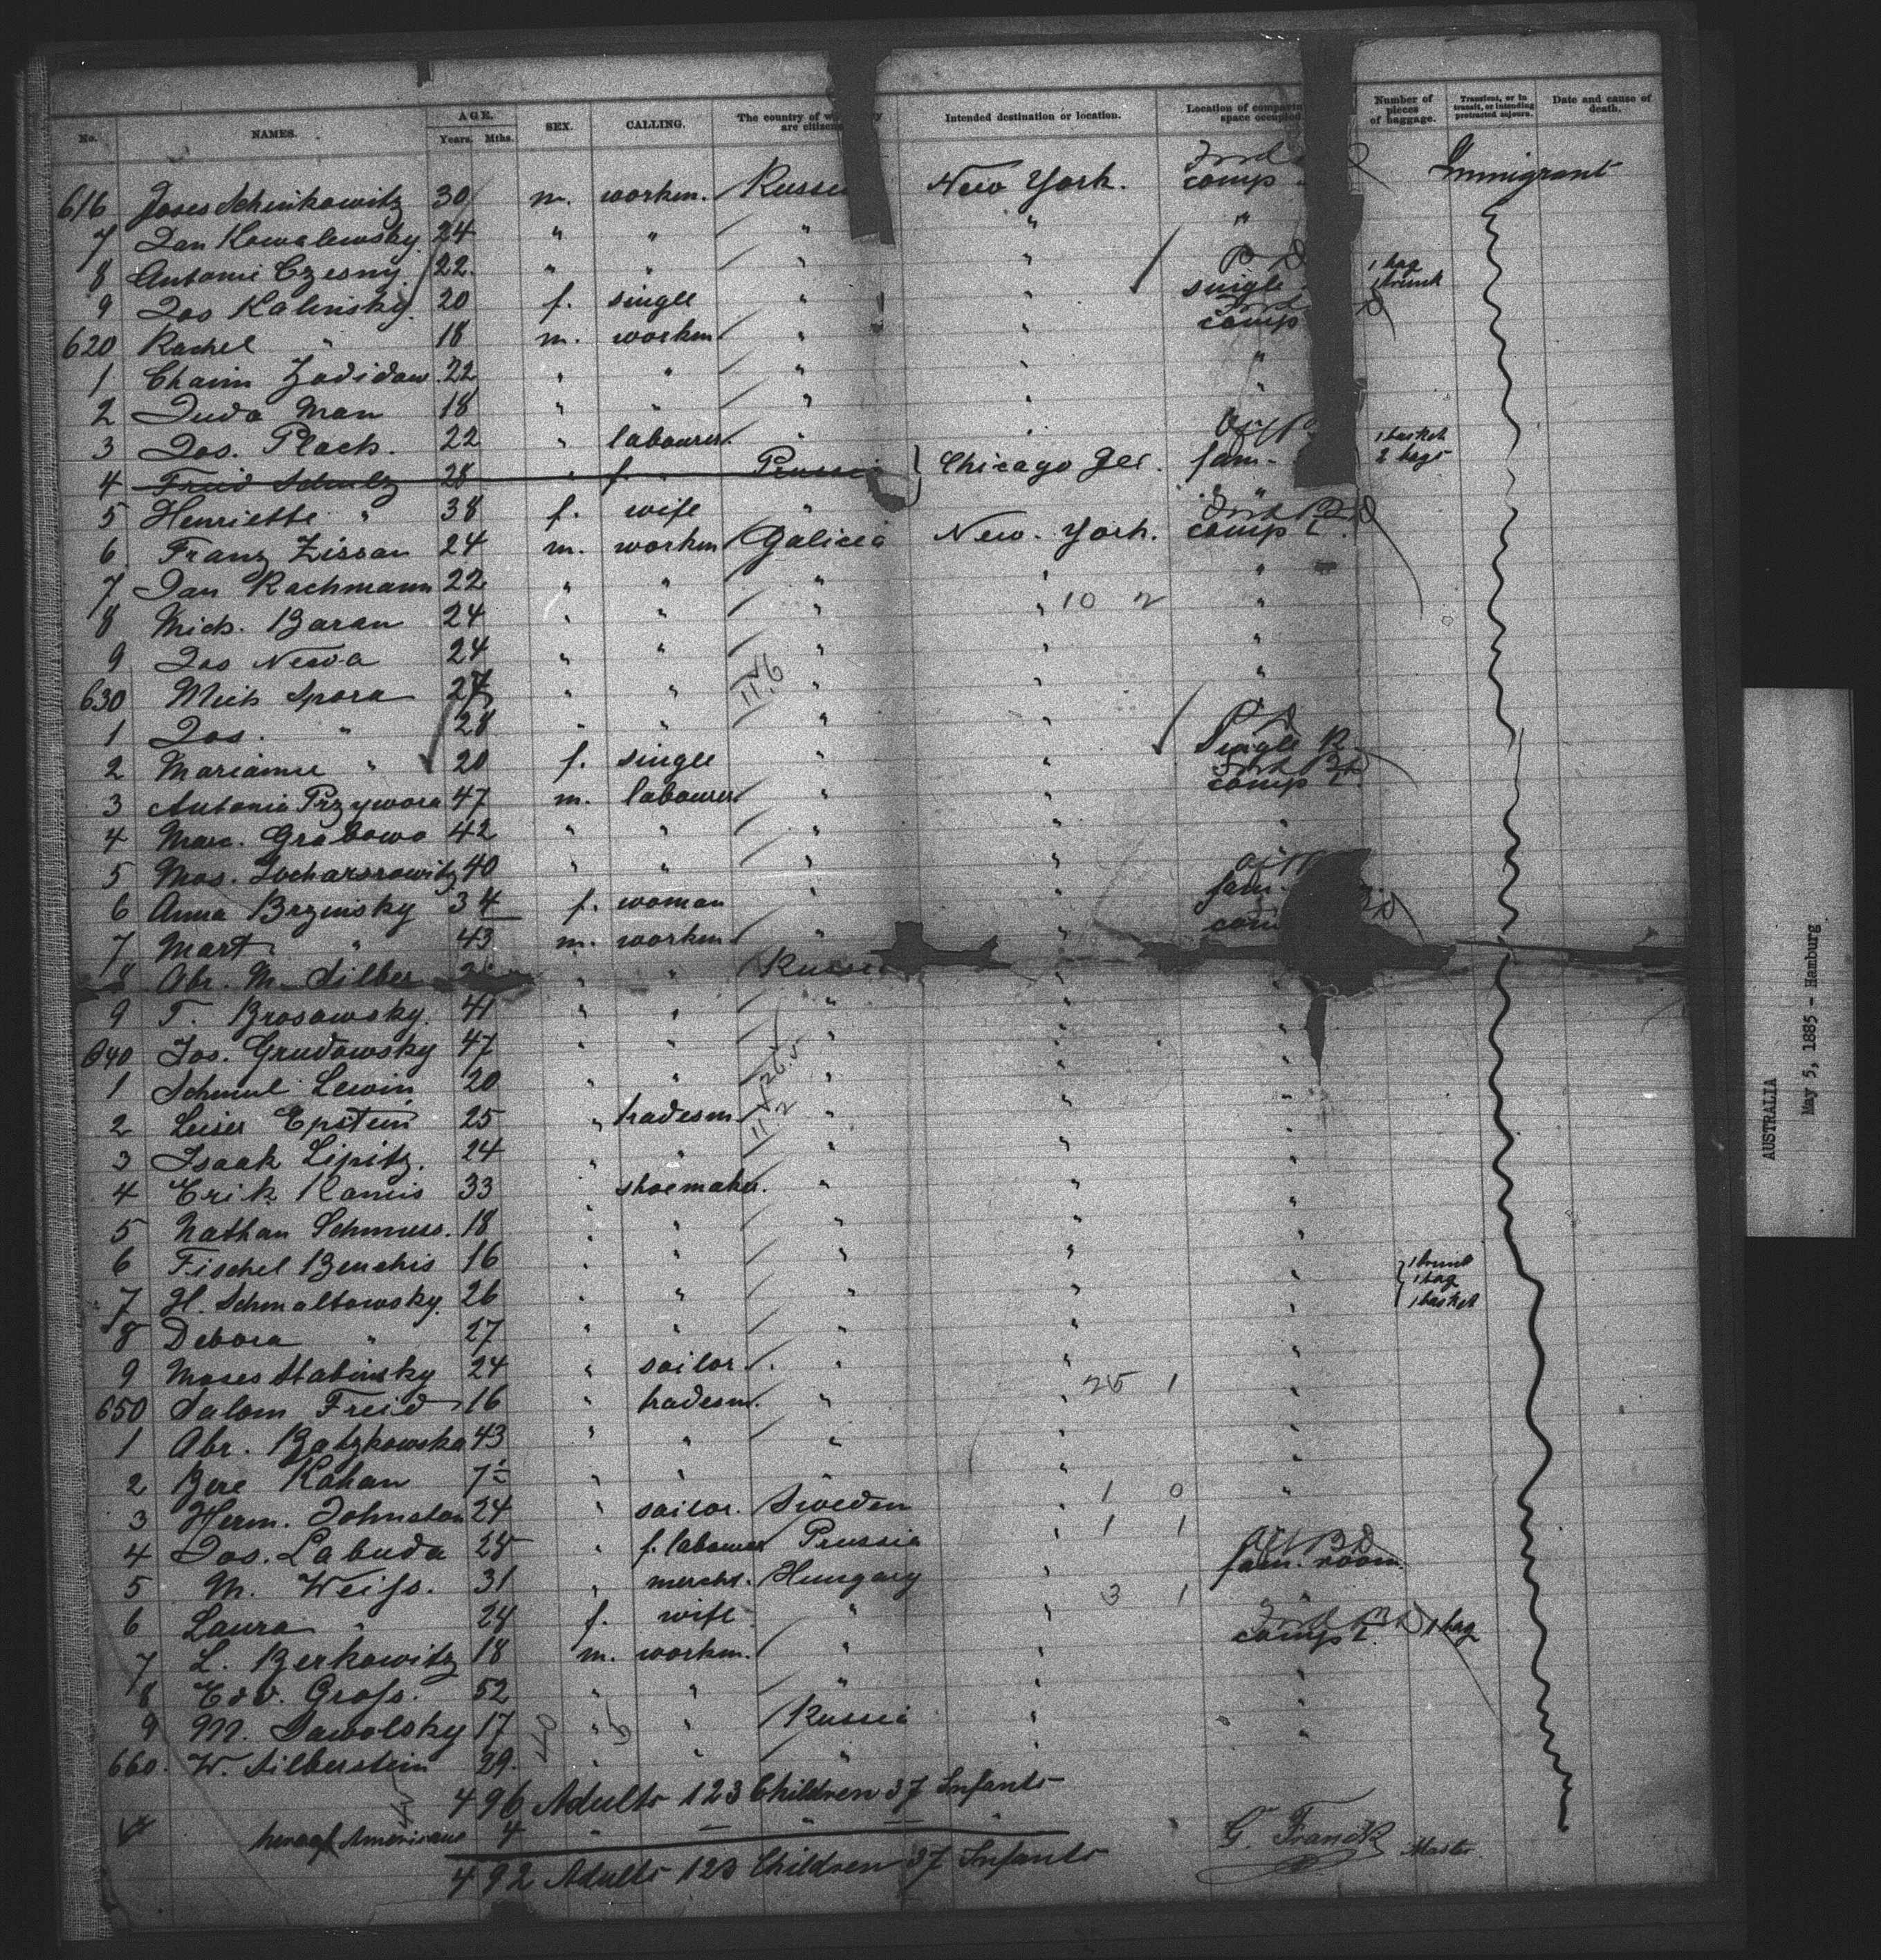 No. NAMES. AGE. Years. Mths. SEX. CALLING. The country of are citizens Intended destination or location. Location of space occupied Number of pieces of baggage. Transient, or in transit, or intending protracted sojourn. Date and cause of death.
616 Joses Schinkowitz 30 m. workm. Russi New York. comp Immigrant
7 Jan Kowalewsky 24 " " " " "
8 Antonie Czesny 22 " " " " 1 bag
9 Jos Kalinsky 20 f. single " " single 1 trunk
620 Rachel " 18 m. workm " " comp
1 Chaim 22 " " " " "
2 Juda Man 18 " " " " "
3 Jos. Plach. 22 " labourer. " " 1 basket
4 Freid Schulz 28 " f. " Prussia Chicago Jll. fam. 2 bags
5 Henriette " 38 f. wife " "
6 Franz Zissan 24 m. workm Galicia New York. comp
7 Jan Rachmann 22 " " " " "
8 Mich. Baran 24 " " " " 10 2 "
9 Jos Newa 24 " " " " "
630 Mich Spora 27 " " " 11.6 " "
1 Jos. " 28 " " " "
2 Marianne " 20 f. single " " Single R
3 Antonia Przywora 47 m. labourer " " comp
4 Marc. Grabowo 42 " " " " "
5 Mos. 40 " " " "
6 Anna Brzinsky 34 f. woman " " fam.
7 Mart " 43 m. workm " " com
8 Abr. M. Silber " " Russia " "
9 T. Brosowsky. 41 " " " " "
640 Jos. Grudowsky 47 " " " " "
1 Schmul Lewin 20 " " " " "
2 Leiser Epstein 25 " tradesm " " "
3 Isaak Lipitz. 24 " " " " "
4 Erik Kamis 33 shoemaker. " " "
5 Nathan Schmuss. 18 " " " " "
6 Fischel Benchis 16 " " " " " 1 trunk
7 H. Schmaltowsky. 26 " " " " 1 bag
8 Debora " 27 " " " " " 1 basket
9 Moses Stabinsky 24 " sailor. " " "
650 Salom Freid 16 " tradesm. " " 25 1 "
1 Abr. Batzkowska 43 " " " " "
2 Bere Kahan " " " " "
3 Herm. Johnston 24 " sailor. Sweden " 1 0 "
4 Jos. Labuda 28 " f. labourer Prussia " 1 1
5 M. Weiss. 31 " mercht. Hungary " fam. room
6 Laura " 28 f. wife " " 3 1 "
7 L. Berkowitz 18 m. workm. " " comp 1 bag
8 Edv. Gross. 52 " " " " "
9 M. Sawolsky 17 " " Russia " "
660. W. Silberstein 29. " " " " "
496 Adults 123 Children 37 Infants
hereof Americans 4 " — " — "
492 Adults 123 Children 37 Infants
G. Franck Master
AUSTRALIA
May 5, 1885 - Hamburg